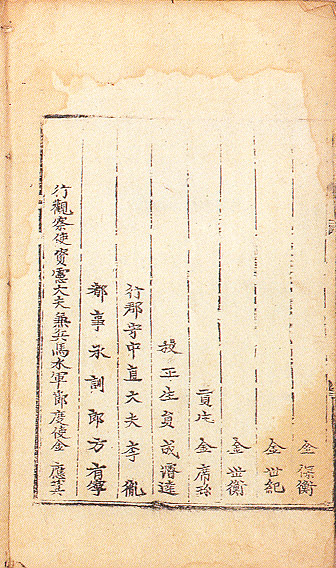 金保衡
金世紀
金世衡
貢生 金席珍
校正生員成濬達
行郡守中直大夫李胤
都事承訓郎方有寧
行觀察使資憲大夫兼兵馬水軍節度使金應箕